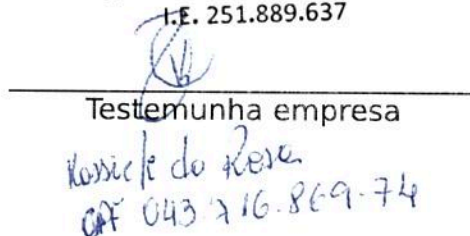 I.E. 251.889.637
Testemunha empresa
da Rosa
CPF 043.716.869-74